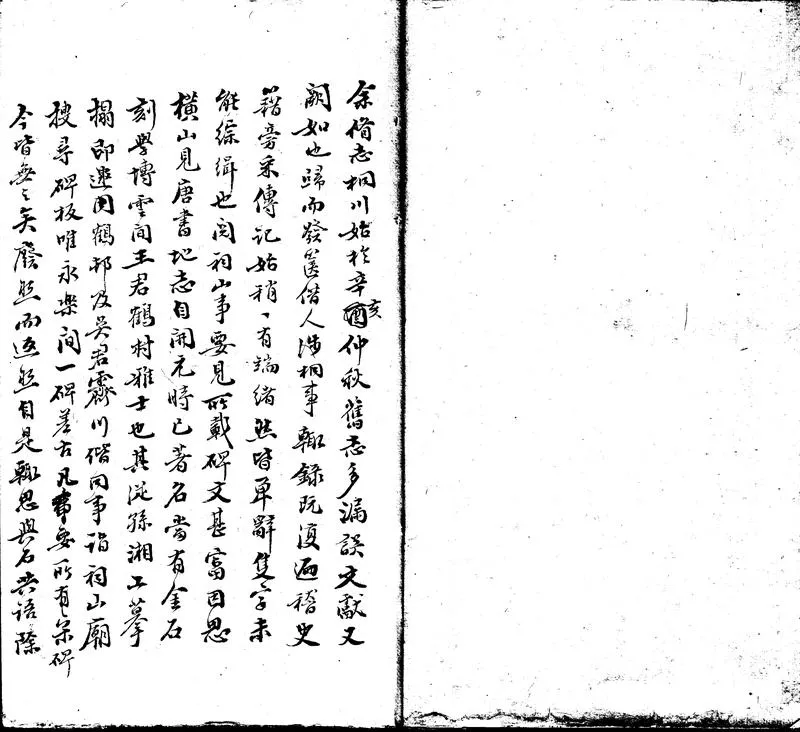 余脩志桐川始於辛亥仲秋舊志多漏誤文獻又
闕如也歸而發篋借人涉桐事輒錄既復遍稽史
籍旁采傳記始稍稍有端緒然皆單辭隻字未
能綜緝也閱祠山事要見所載碑文甚富因思
橫山見唐書地志自開元時已著名當有金石
刻學博雲間王君鶴村雅士也其從孫湘工摹
搨即邀同鶴邨及吳君霽川偕同事詣祠山廟
搜尋碑板唯永樂間一碑差古凡事要所有宋碑
今皆無無矣廢然而返然自是輒思與石共語除